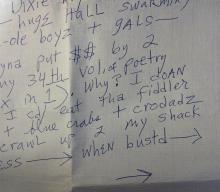 Dixie
huge Hall swarming
-ole boyz + gals—
yna put $$ by 2
my 34th vol. of poetry
x in 1). Why? I cOAN
I cd eat tha fiddler
+ blue crabs + crodadz
crawl up 2 my shack
ESS → when bustd →
→